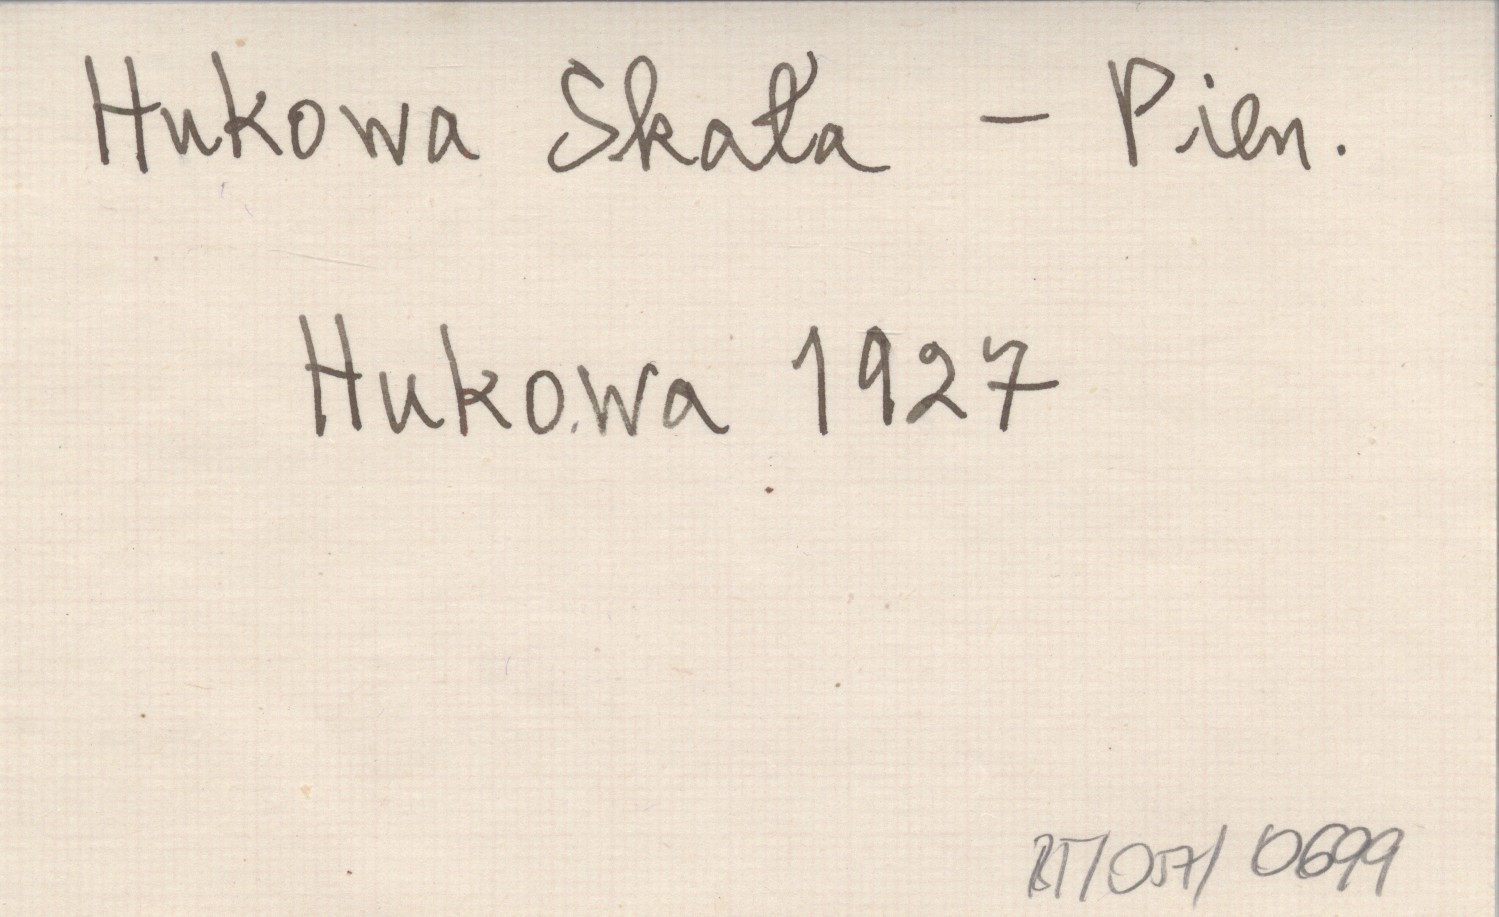 Hukowa Skała - Pien.
Hukowa 1927
BT/057/0699